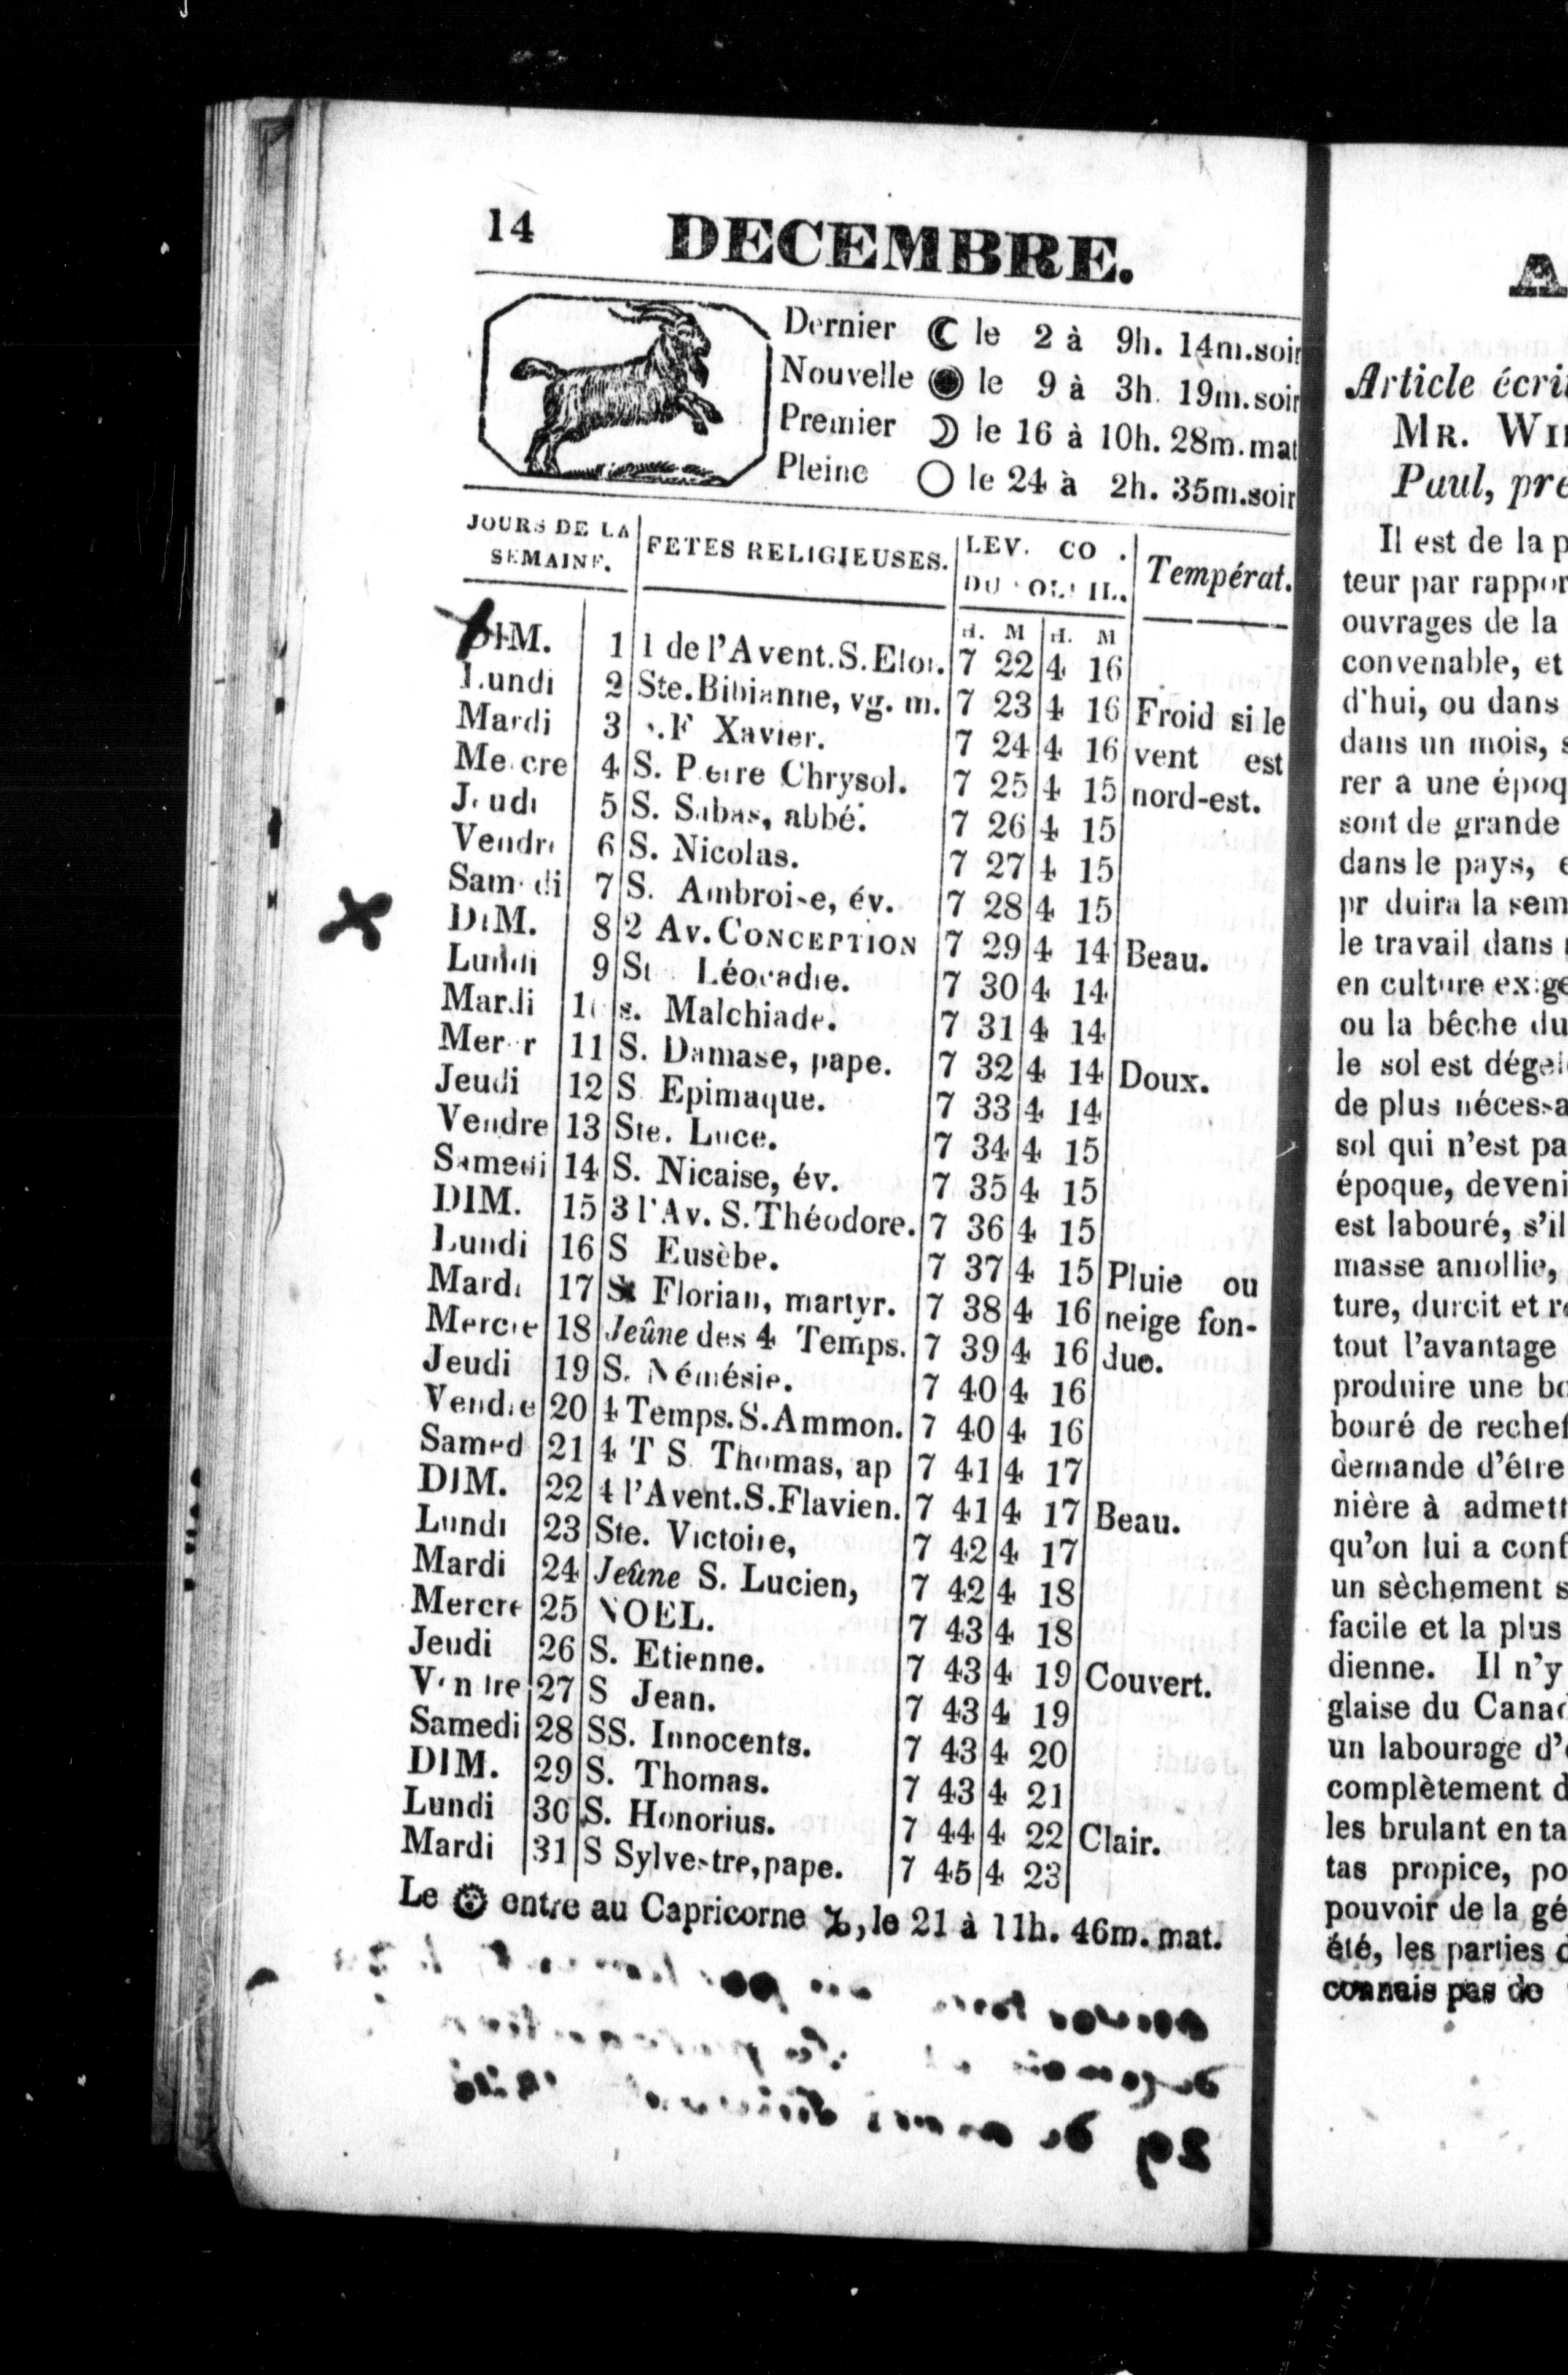 14 DECEMBRE.
Dernier ☾ le 2 à 9h. 14m. soir
Nouvelle ● le 9 à 3h. 19m. soir
Premier ☽ le 16 à 10h. 28m. mat
Pleine ○ le 24 à 2h. 35m. soir
JOURS DE LA SEMAINE. FETES RELIGIEUSES. LEV. CO . DU OL IL. Températ.
H. M H. M
DIM. 1 1 de l'Avent. S. Eloi. 7 22 4 16
Lundi 2 Ste. Bibianne, vg. m. 7 23 4 16 Froid si le
Mardi 3 .F Xavier. 7 24 4 16 vent est
Me cre 4 S. P erre Chrysol. 7 25 4 15 nord-est.
Jeudi 5 S. Sabas, abbé. 7 26 4 15
Vendre 6 S. Nicolas. 7 27 4 15
Samedi 7 S. Ambroise, év. 7 28 4 15
DIM. 8 2 Av. CONCEPTION 7 29 4 14 Beau.
Lundi 9 St Léocadie. 7 30 4 14
Mardi 10 s. Malchiade. 7 31 4 14
Mer r 11 S. Damase, pape. 7 32 4 14 Doux.
Jeudi 12 S Epimaque. 7 33 4 14
Vendre 13 Ste. Luce. 7 34 4 15
Samedi 14 S. Nicaise, év. 7 35 4 15
DIM. 15 3 l'Av. S. Théodore. 7 36 4 15
Lundi 16 S Eusèbe. 7 37 4 15 Pluie ou
Mardi 17 St Florian, martyr. 7 38 4 16 neige fon-
Mercre 18 Jeûne des 4 Temps. 7 39 4 16 due.
Jeudi 19 S. Némésie. 7 40 4 16
Vendre 20 4 Temps. S. Ammon. 7 40 4 16
Samed 21 4 T S Thomas, ap 7 41 4 17
DIM. 22 4 l'Avent. S. Flavien. 7 41 4 17 Beau.
Lundi 23 Ste. Victoire, 7 42 4 17
Mardi 24 Jeûne S. Lucien, 7 42 4 18
Mercre 25 NOEL. 7 43 4 18
Jeudi 26 S. Etienne. 7 43 4 19 Couvert.
Vendre 27 S Jean. 7 43 4 19
Samedi 28 SS. Innocents. 7 43 4 20
DIM. 29 S. Thomas. 7 43 4 21
Lundi 30 S. Honorius. 7 44 4 22 Clair.
Mardi 31 S Sylvestre, pape. 7 45 4 23
Le ☉ entre au Capricorne ♑, le 21 à 11h. 46m. mat.
A
Article écri
MR. WI
Paul, pre
Il est de la p
teur par rappor
ouvrages de la
convenable, et
d'hui, ou dans
dans un mois, s
rer a une époq
sont de grande
dans le pays, e
pr duira la sem
le travail dans
en culture exige
ou la bêche du
le sol est dégel
de plus nécessa
sol qui n'est pa
époque, deveni
est labouré, s'il
masse amollie,
ture, durcit et re
tout l'avantage
produire une bo
bouré de rechef
demande d'être
nière à admett
qu'on lui a conf
un sèchement s
facile et la plus
dienne. Il n'y
glaise du Canad
un labourage d'
complètement d
les brulant en ta
tas propice, po
pouvoir de la gé
été, les parties d
connais pas de